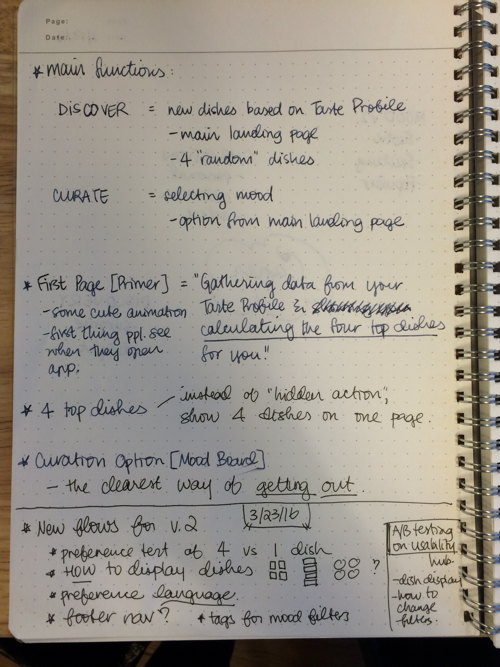 Page:
Date:
* main functions:
DISCOVER = new dishes based on Taste Profile
- main landing page
- 4 "random" dishes
CURATE = selecting mood
- option from main landing page
* First Page [Primer] = "Gathering data from your
- some cute animation Taste Profile &
- first thing ppl. see calculating the four top dishes
when they open for you."
app.
* 4 top dishes - instead of "hidden action",
show 4 dishes on one page.
* Curation Option [Mood Board]
- the clearest way of getting out.
3/23/16
* New flows for v.2
* preference test of 4 vs 1 dish
* HOW to display dishes ?
* preference language.
* footer nav? * tags for mood filters
A/B testing
on usability
hub.
- dish display
- how to
change
filters.